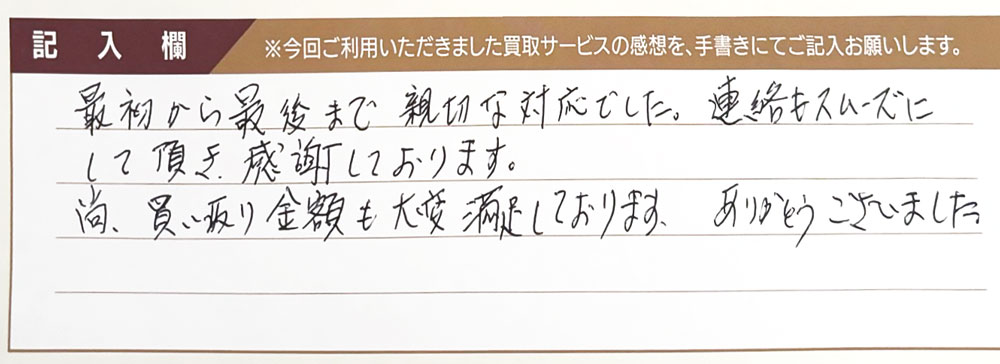 記入欄
※今回ご利用いただきました買取サービスの感想を、手書きにてご記入お願いします。
最初から最後まで親切な対応でした。連絡もスムーズに
して頂き感謝しております。
尚、買い取り金額も大変満足しております、ありがとうございました